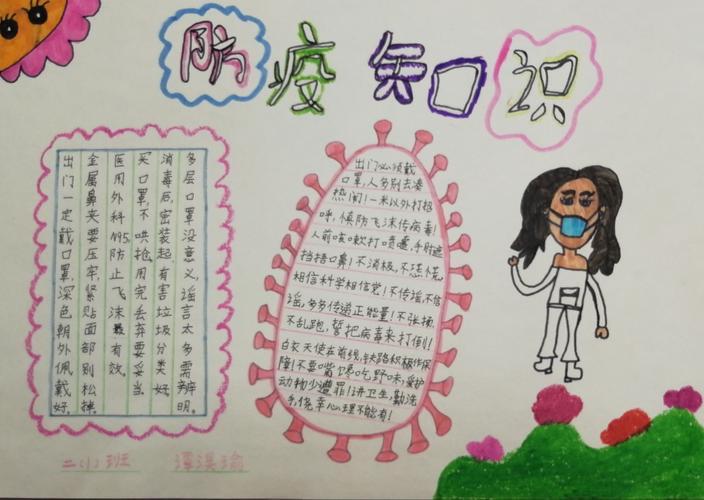 防疫知识
出门一定戴口罩,深色朝外佩戴好.
金属鼻夹要压牢,紧贴面部别松掉
医用外科N95,防止飞沫最有效.
买口罩,不哄抢,用完丢弃要妥当.
消毒后,密装起,有害垃圾分类好
多层口罩没意义,谣言太多需辨明.
出门必须戴
口罩,人多别去凑
热闹!一米以外打招
呼,慎防飞沫传病毒!
人前咳嗽打喷嚏,手肘遮
挡捂口鼻!不消极,不恐慌,
相信科学相信党!不传谣,不信
谣,多多传递正能量!不张扬,
不乱跑,誓把病毒来打倒!
白衣天使在前线,铁路积极作保
障!不要嘴馋吃野味,爱护
动物少遭罪!讲卫生,勤洗
手,侥幸心理不能有!
二(1)班